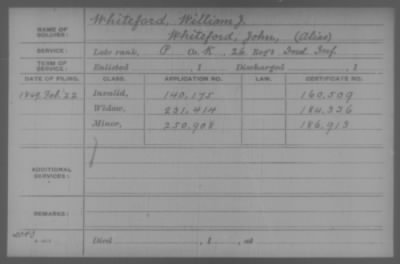 Whiteford, William J.
NAME OF SOLDIER: Whiteford, John, (Alias)
SERVICE: Late rank, P Co. K, 26 Reg't Ind. Inf.
TERM OF SERVICE: Enlisted , 1 Discharged , 1
DATE OF FILING. CLASS. APPLICATION NO. LAW. CERTIFICATE NO.
1869 Feb. 22 Invalid, 140.175 160.509
Widow, 231.414 184.336
Minor, 250.908 186.913
ADDITIONAL SERVICES:
REMARKS:
Died , 1 , at